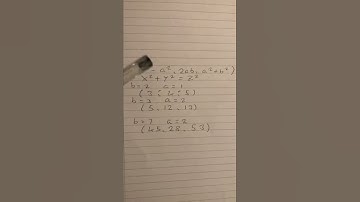 = a², 2ab, a²+b²)
x²+y²=z²
b=2 a=1
(3, 4, 5)
b=3 a=2
(5, 12, 13)
b=7 a=2
(45, 28, 53)